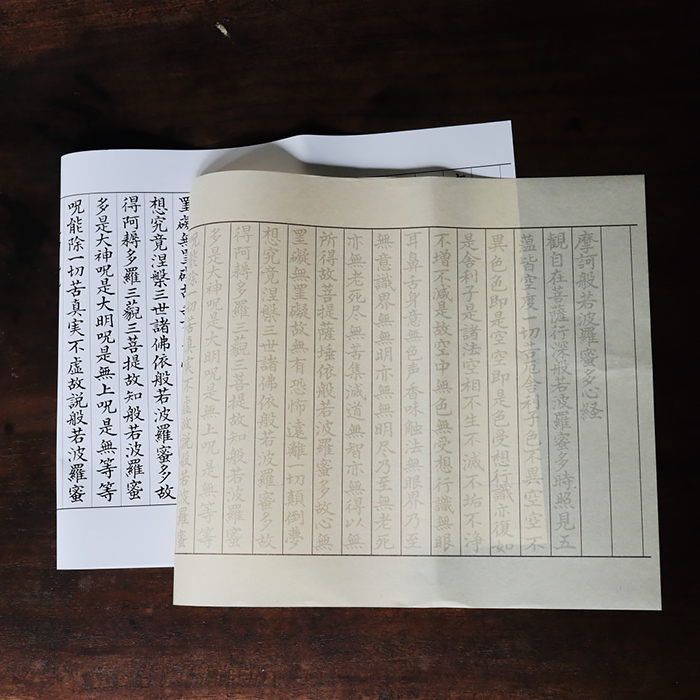 摩訶般若波羅蜜多心経
観自在菩薩行深般若波羅蜜多時照見五
蘊皆空度一切苦厄舍利子色不異空空不
異色色即是空空即是色受想行識亦復如
是舍利子是諸法空相不生不滅不垢不浄
不増不減是故空中無色無受想行識無眼
耳鼻舌身意無色声香味触法無眼界乃至
無意識界無無明亦無無明尽乃至無老死
亦無老死尽無苦集滅道無智亦無得以無
所得故菩提薩埵依般若波羅蜜多故心無
罣礙無罣礙故無有恐怖遠離一切顛倒夢
想究竟涅槃三世諸佛依般若波羅蜜多故
得阿耨多羅三藐三菩提故知般若波羅蜜
多是大神呪是大明呪是無上呪是無等等
呪能除一切苦真実不虚故説般若波羅蜜
罣礙無罣礙故
想究竟涅槃三世諸佛依般若波羅蜜多故
得阿耨多羅三藐三菩提故知般若波羅蜜
多是大神呪是大明呪是無上呪是無等等
呪能除一切苦真実不虚故説般若波羅蜜